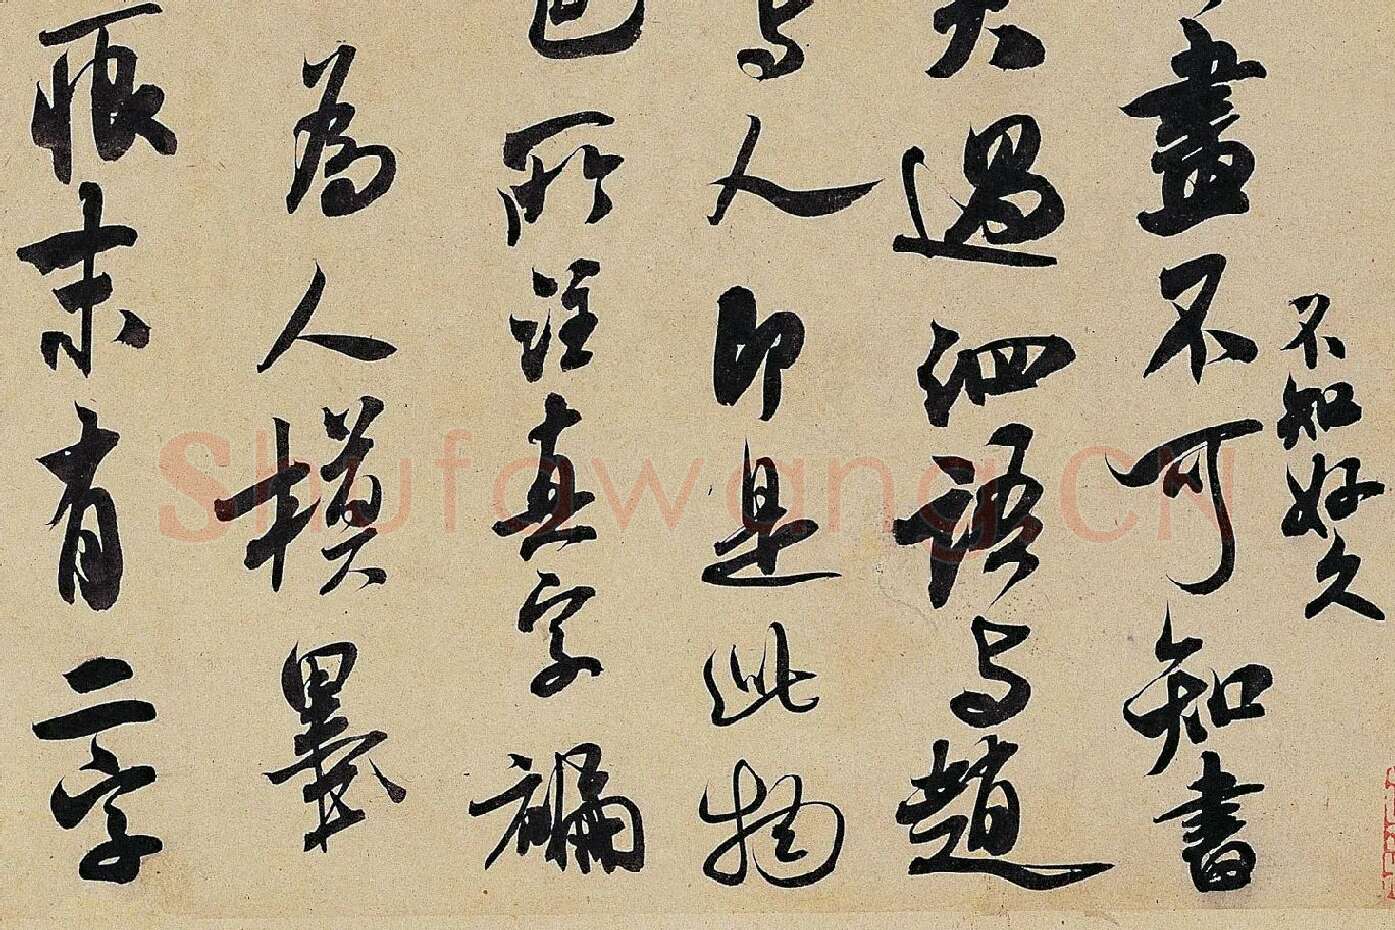 不知好久
盡不可知書
過泗語与趙
与人即是此物
所注真字褊
為人模
恨末有二字
Shufawang.CN